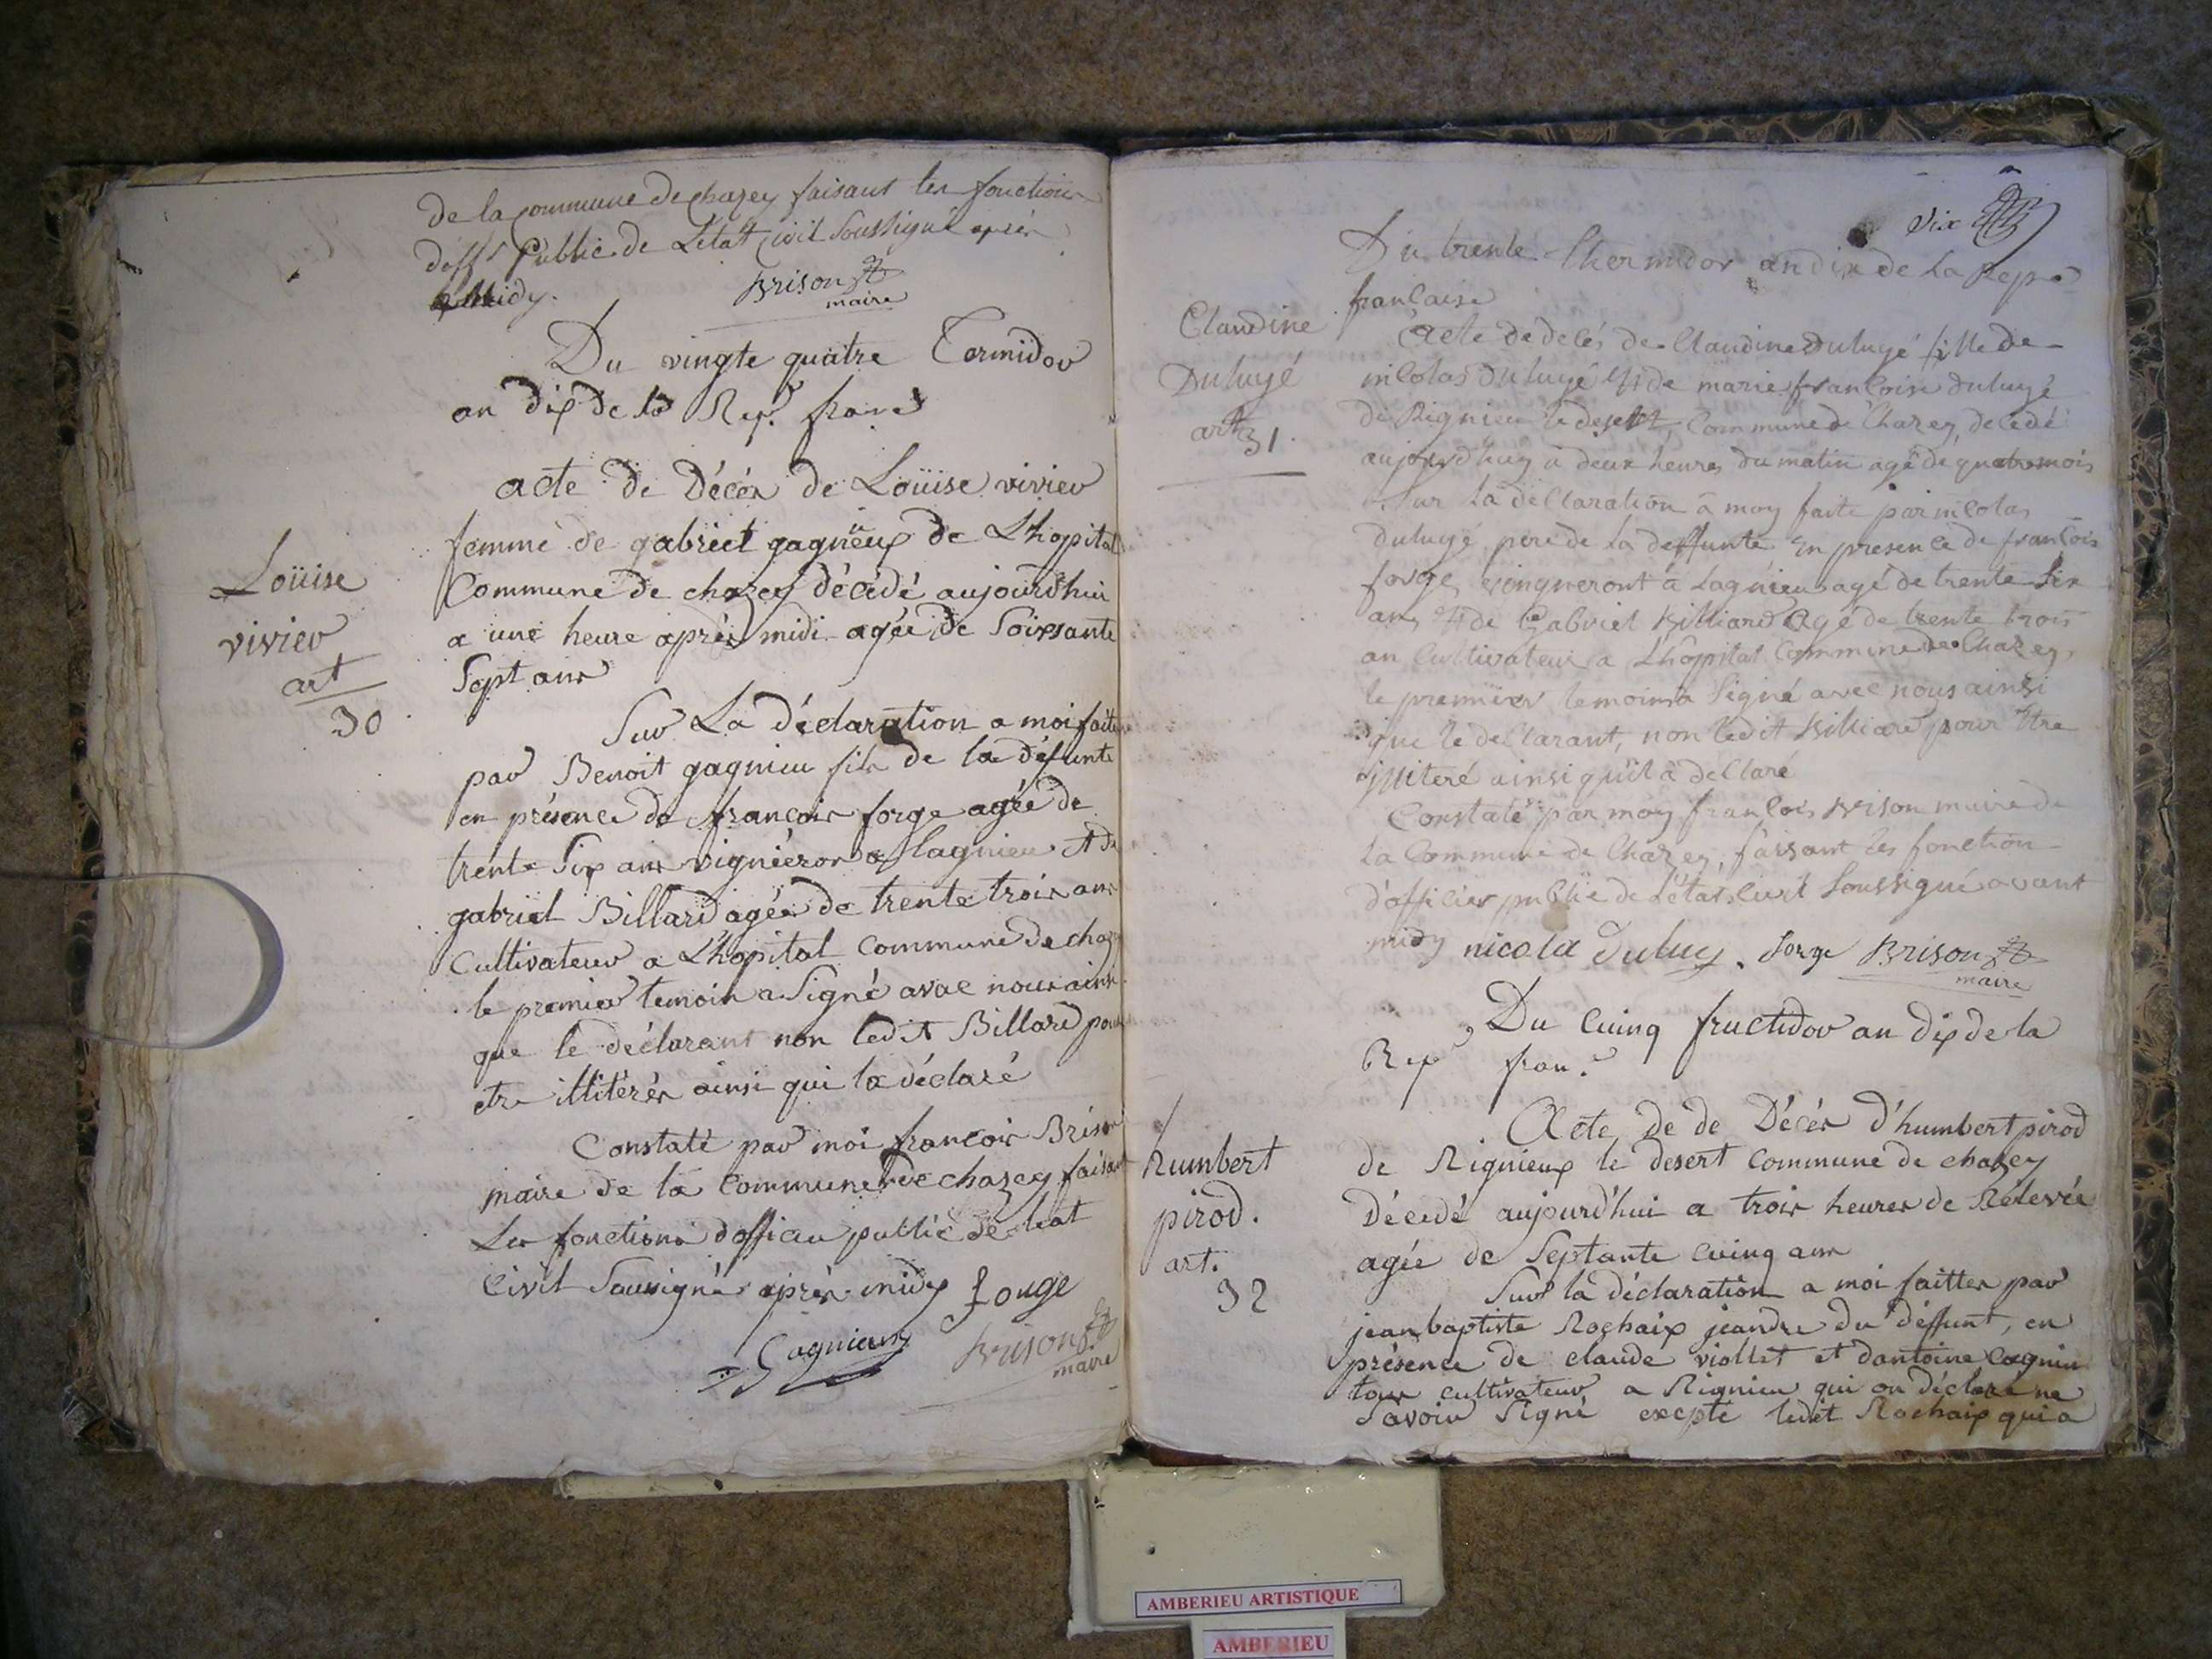 de la commune de chazey faisant les fonctions
d'offr Public de Létatt Civil Soussigné après
Midy.
Brison
maire
Du vingte quatre Termidor
an dix de la Rep. franc
Loüise
vivier
art
30
acte de Décés de Loüise vivier
femme de gabriel gagnieux de Lhopital
Commune de chazey décédé aujourd'hui
a une heure après midi agée de Soixsante
Sept ans
Sur La déclaration a moi faite
par Benoit gagnieu fils de la défunte
en présence de françois forge agée de
trente Six ans vignieron a lagnieu et de
gabriel Billard agée de trente trois ans
Cultivateur a Lhopital Commune de chazey
le premier temoin a Signé avac nous ainsi
que le déclarant non ledit Billard pour
etre illitérés ainsi qui la déclaré
Constaté par moi françois Brison
maire de la Commune de chazey faisant
Les fonctions dofficier public de letat
Civil Soussigné après midy forge
Gagnieux
Brison
maire
Dix
Du trente Thermidor an dix de la Rep.
française
Claudine
Duluyé
art 31.
Acte de decés de Claudine Duluyé fille de
nicolas Duluyé et de marie françoise duluyé
de Rignieu le desert, Commune de Chazey, decedé
aujourd'huy à deux heures du matin agé de quatre mois
Sur la déclaration à moy faite par nicolas
Duluyé pere de la deffunte en presence de françois
forge, vingneront à Lagnieu agé de trente Six
ans et de Gabriel Billiard agé de trente trois
an Cultivateur a Lhôpital Commune de Chazey,
le premier temoins a Signé avec nous ainsi
que le déclarant, non ledit Billiard pour Etre
illiteré ainsi qu'il a déclaré
Constaté par moy françois Brison maire de
la Commune de Chazey, faisant les fonction
d'officier publie de L'état civil Soussigné avant
midy nicola duluy. forge Brison
maire
Du Cuinq fructidor an dix de la
Rep fran.
humbert
pirod.
art.
32
Acte de de Décés d'humbert pirod
de Rignieux le desert Commune de chazey
Décedé aujourd'hui a trois heures de Rélevée
agée de Septante Cuinq ans
Sur la déclaration a moi faittes par
jean baptiste Rochaix jeandre du déffunt, en
présence de claude viollet et dantoine Cagnin
tous cultivateur a Rignieu qui on déclaré ne
Savoir Signé excepté ledit Rochaix qui a
AMBERIEU ARTISTIQUE
AMBERIEU